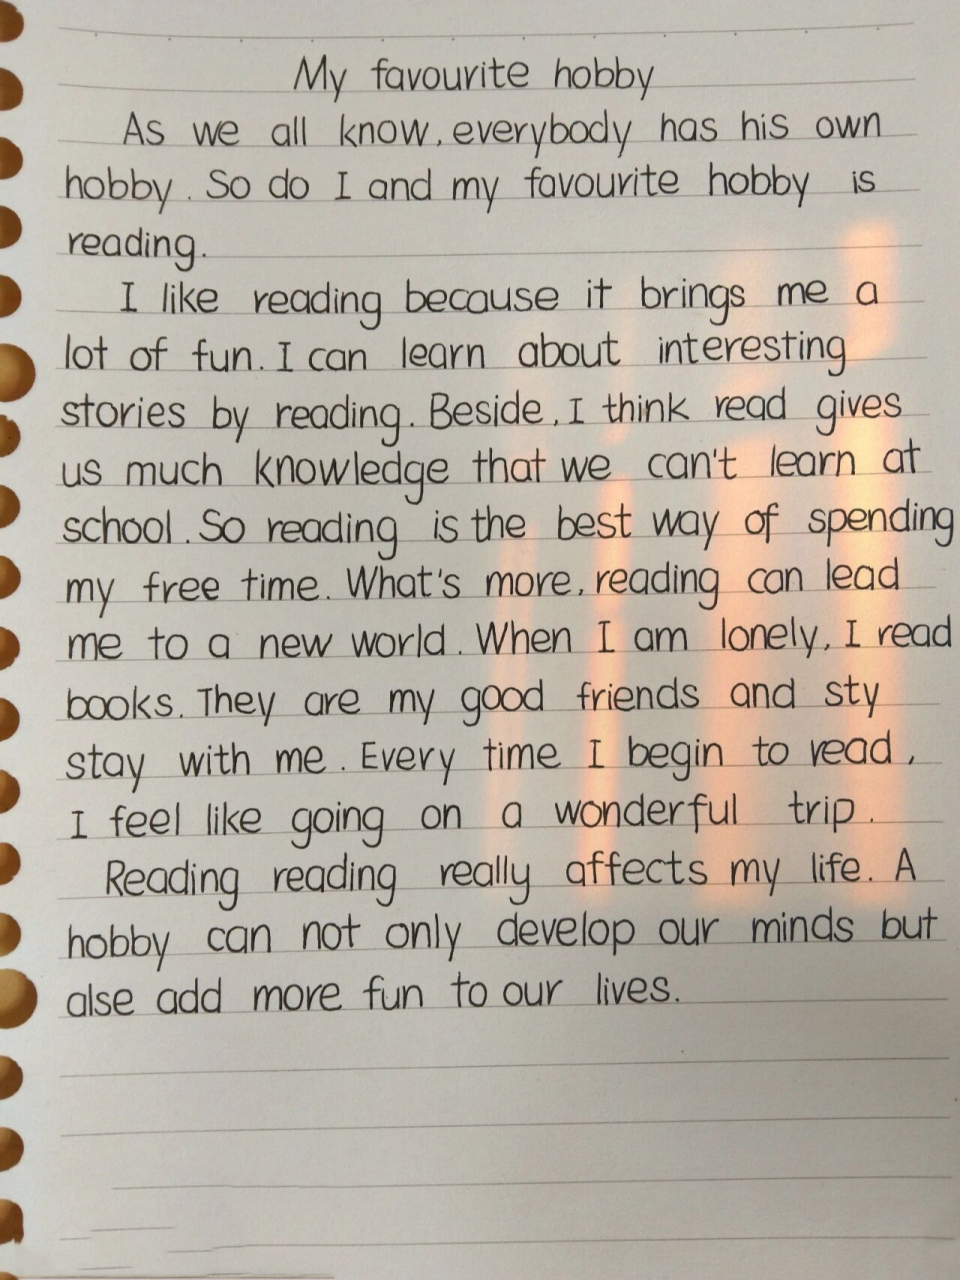 My favourite hobby
As we all know, everybody has his own
hobby. So do I and my favourite hobby is
reading.
I like reading because it brings me a
lot of fun. I can learn about interesting
stories by reading. Beside, I think read gives
us much knowledge that we can't learn at
school. So reading is the best way of spending
my free time. What's more, reading can lead
me to a new world. When I am lonely, I read
books. They are my good friends and sty
stay with me. Every time I begin to read,
I feel like going on a wonderful trip.
Reading reading really affects my life. A
hobby can not only develop our minds but
alse add more fun to our lives.